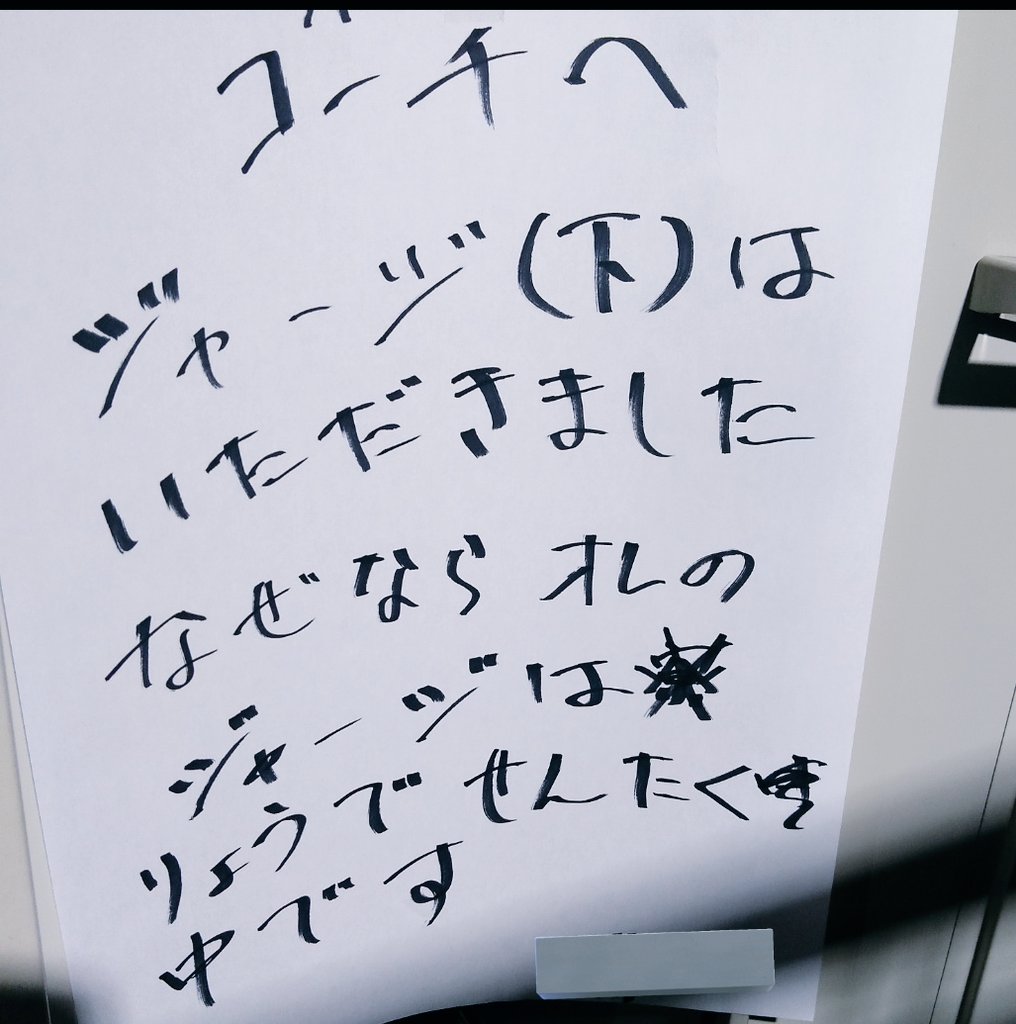 コーチへ
ジャージ(下)は
いただきました
なぜなら オレの
ジャージは
りょうで せんたく
中です